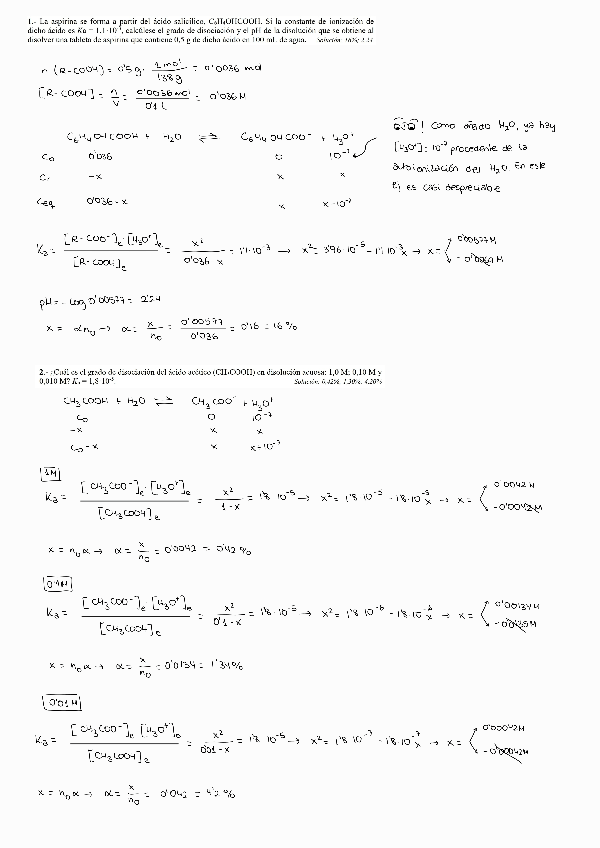 1.- La aspirina se forma a partir del ácido salicílico, C₆H₄OHCOOH. Si la constante de ionización de
dicho ácido es Ka = 1,1·10⁻³, calcúlese el grado de disociación y el pH de la disolución que se obtiene al
disolver una tableta de aspirina que contiene 0,5 g de dicho ácido en 100 mL de agua. Solución: 16%; 2,24
n (R-COOH) = 0'5g · 1mol / 138g = 0'0036 mol
[R-COOH] = n / V = 0'0036 mol / 0'1 L = 0'036 M
C₆H₄OHCOOH + H₂O ⇌ C₆H₄OHCOO⁻ + H₃O⁺
C₀ 0'036 0 10⁻⁷
C -x x x
Ceq 0'036-x x x+10⁻⁷
! Como añado H₂O, ya hay
[H₃O⁺] = 10⁻⁷ procedente de la
autoionización del H₂O. En este
ej es casi despreciable
Ka = [R-COO⁻]e · [H₃O⁺]e / [R-COOH]e = x² / 0'036-x = 1'1·10⁻³ → x² = 3'96·10⁻⁵ - 1'1·10⁻³x → x = 0'00577M
pH = -Log 0'00577 = 2'24
x = αn₀ → α = x / n₀ = 0'00577 / 0'036 = 0'16 = 16 %
2.- ¿Cuál es el grado de disociación del ácido acético (CH₃COOH) en disolución acuosa: 1,0 M; 0,10 M y
0,010 M? Kₐ = 1,8·10⁻⁵. Solución: 0,42%, 1,30%, 4,20%
CH₃COOH + H₂O ⇌ CH₃COO⁻ + H₃O⁺
C₀ 0 10⁻⁷
-x x x
C₀-x x x+10⁻⁷
1M
Ka = [CH₃COO⁻]e · [H₃O⁺]e / [CH₃COOH]e = x² / 1-x = 1'8·10⁻⁵ → x² = 1'8·10⁻⁵ - 1'8·10⁻⁵x → x = 0'0042M
-0'0042M
x = n₀α → α = x / n₀ = 0'0042 = 0'42 %
0'1M
Ka = [CH₃COO⁻]e [H₃O⁺]e / [CH₃COOH]e = x² / 0'1-x = 1'8·10⁻⁵ → x² = 1'8·10⁻⁶ - 1'8·10⁻⁵x → x = 0'00134M
x = n₀α → α = x / n₀ = 0'0134 = 1'34%
0'01M
Ka = [CH₃COO⁻]e [H₃O⁺]e / [CH₃COOH]e = x² / 0'01-x = 1'8·10⁻⁵ → x² = 1'8·10⁻⁷ - 1'8·10⁻⁷x → x = 0'00042M
-0'00042M
x = n₀α → α = x / n₀ = 0'042 = 4'2 %